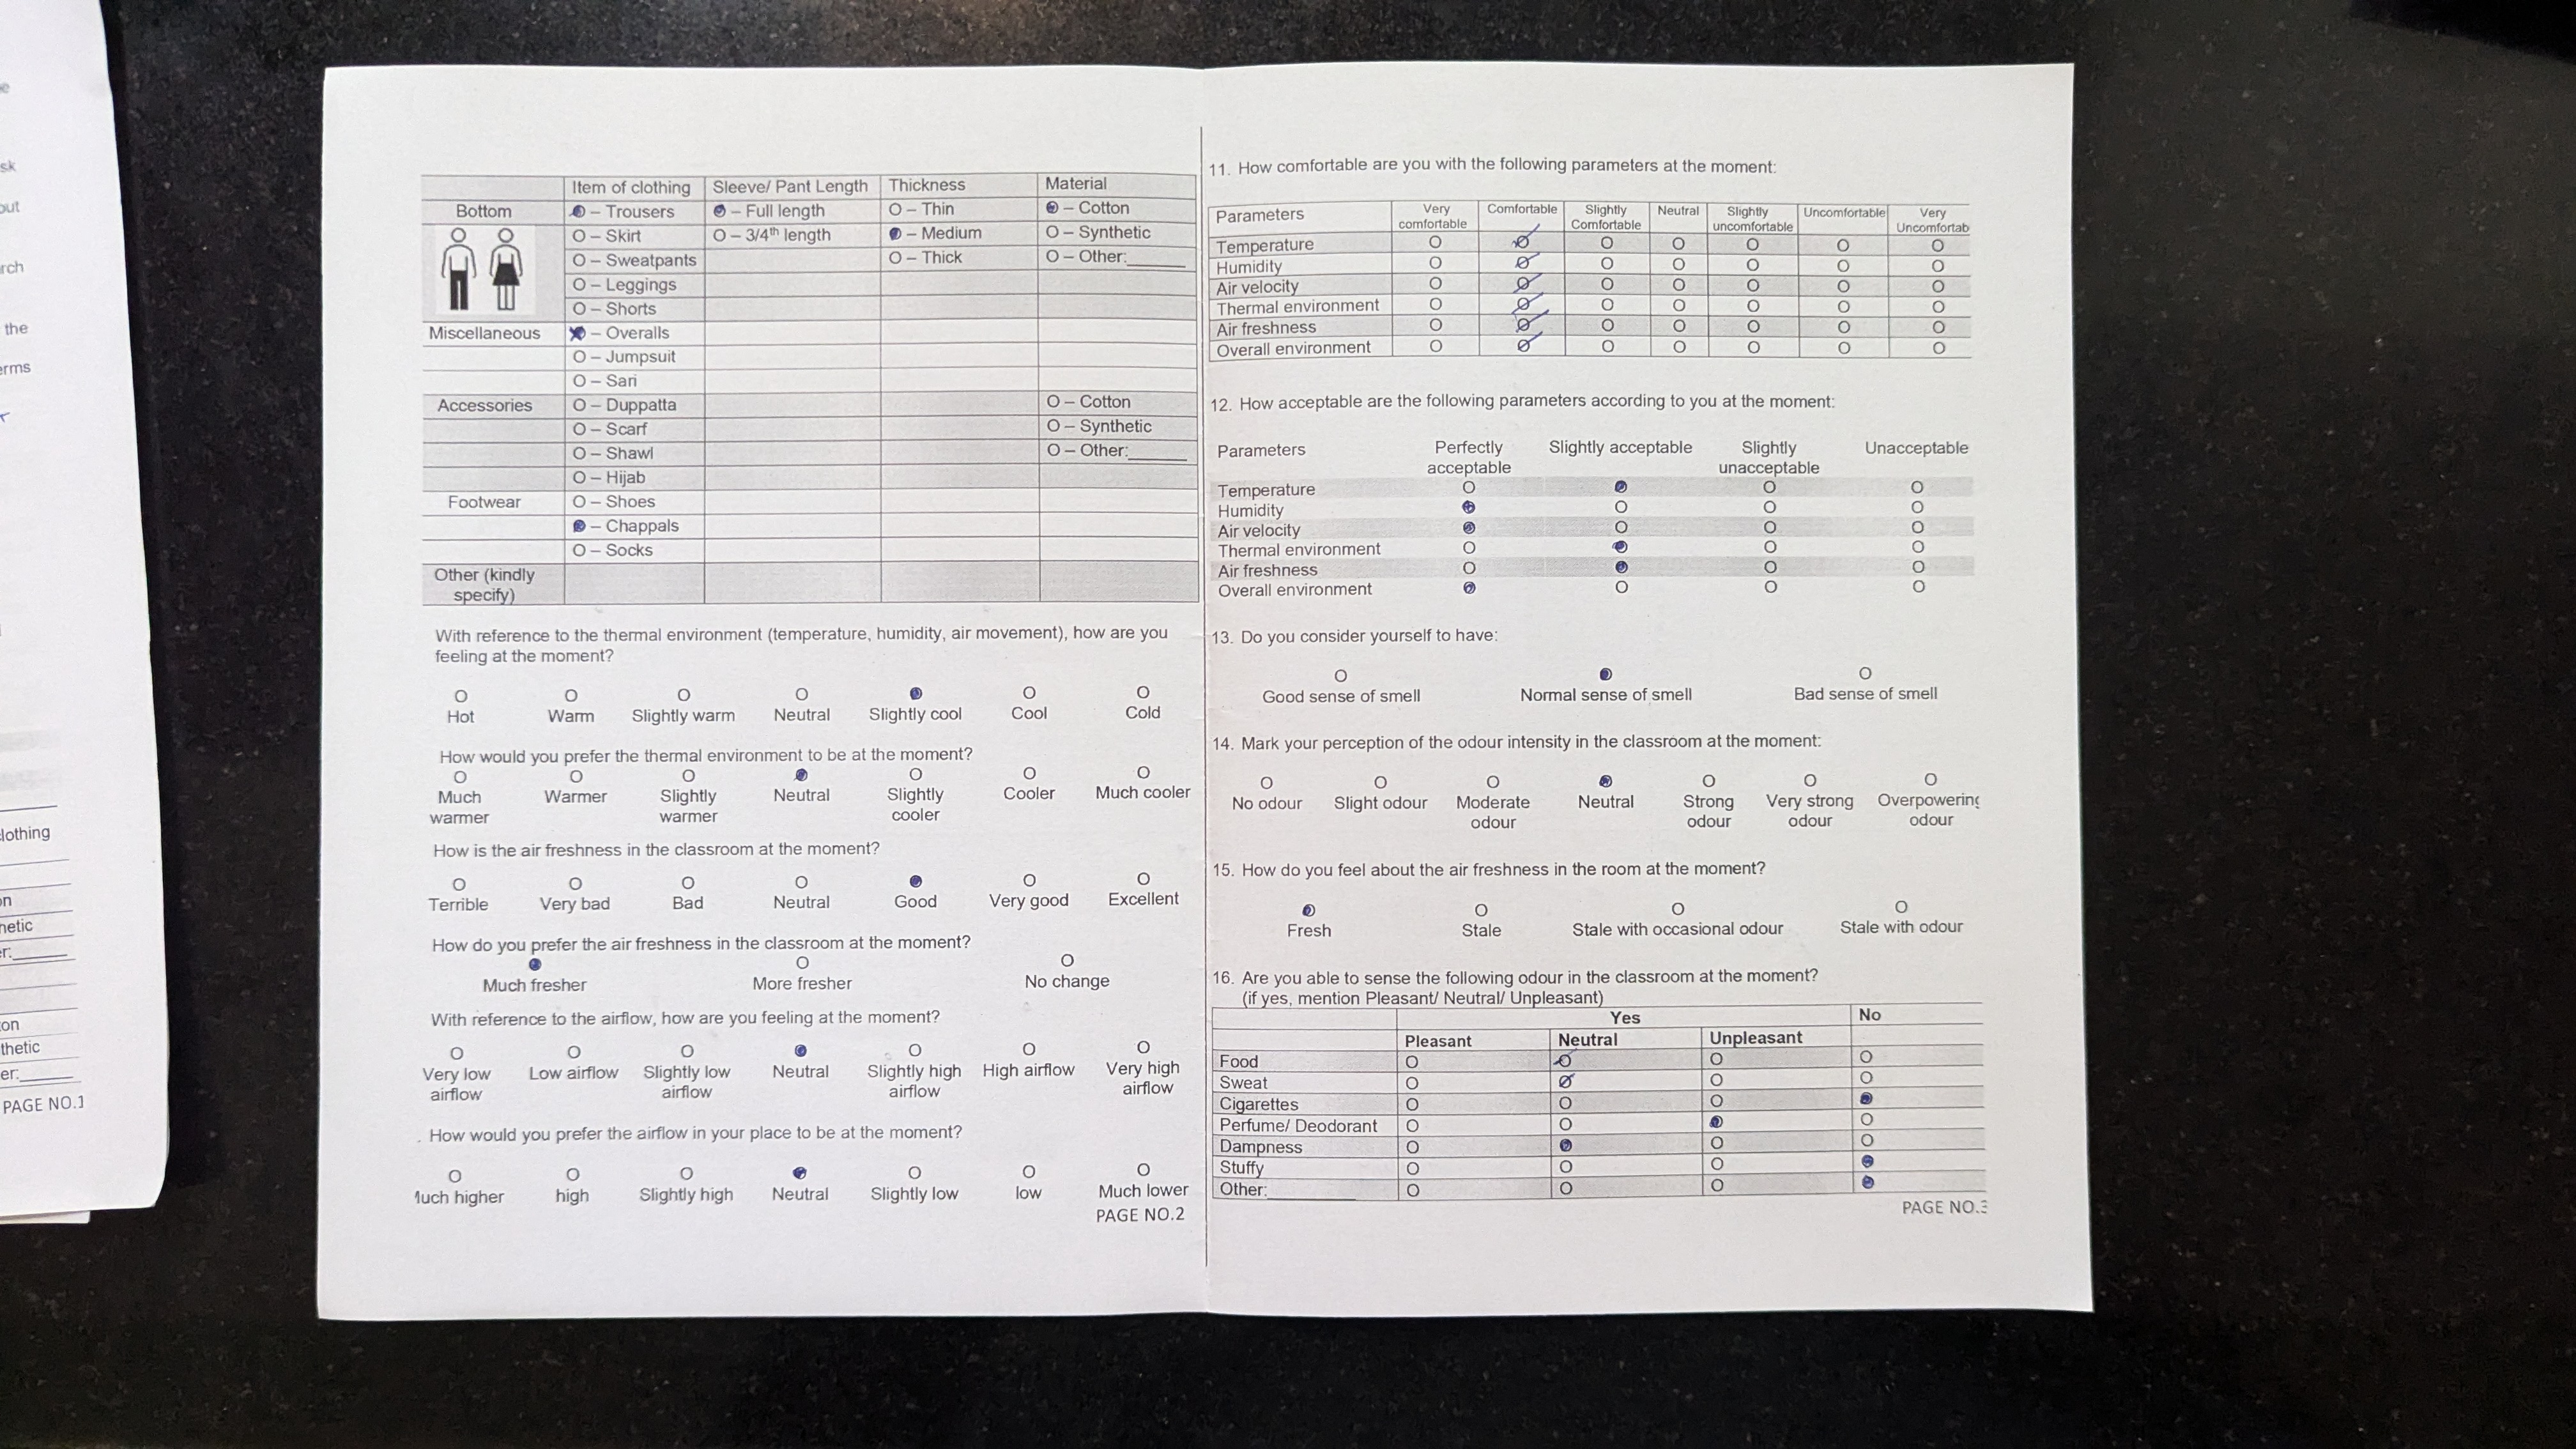 sk
out
rch
the
erms
lothing
on
netic
er:______
on
thetic
er:______
PAGE NO.1
Item of clothing Sleeve/ Pant Length Thickness Material
Bottom O – Trousers O – Full length O – Thin O – Cotton
O – Skirt O – 3/4th length O – Medium O – Synthetic
O – Sweatpants O – Thick O – Other:______
O – Leggings
O – Shorts
Miscellaneous O – Overalls
O – Jumpsuit
O – Sari
Accessories O – Duppatta O – Cotton
O – Scarf O – Synthetic
O – Shawl O – Other:______
O – Hijab
Footwear O – Shoes
O – Chappals
O – Socks
Other (kindly
specify)
With reference to the thermal environment (temperature, humidity, air movement), how are you
feeling at the moment?
Hot Warm Slightly warm Neutral Slightly cool Cool Cold
How would you prefer the thermal environment to be at the moment?
Much Warmer Slightly Neutral Slightly Cooler Much cooler
warmer warmer cooler
How is the air freshness in the classroom at the moment?
Terrible Very bad Bad Neutral Good Very good Excellent
How do you prefer the air freshness in the classroom at the moment?
Much fresher More fresher No change
With reference to the airflow, how are you feeling at the moment?
Very low Low airflow Slightly low Neutral Slightly high High airflow Very high
airflow airflow airflow airflow
. How would you prefer the airflow in your place to be at the moment?
uch higher high Slightly high Neutral Slightly low low Much lower
PAGE NO.2
11. How comfortable are you with the following parameters at the moment:
Parameters Very Comfortable Slightly Neutral Slightly Uncomfortable Very
comfortable Comfortable uncomfortable Uncomfortab
Temperature
Humidity
Air velocity
Thermal environment
Air freshness
Overall environment
12. How acceptable are the following parameters according to you at the moment:
Parameters Perfectly Slightly acceptable Slightly Unacceptable
acceptable unacceptable
Temperature
Humidity
Air velocity
Thermal environment
Air freshness
Overall environment
13. Do you consider yourself to have:
Good sense of smell Normal sense of smell Bad sense of smell
14. Mark your perception of the odour intensity in the classroom at the moment:
No odour Slight odour Moderate Neutral Strong Very strong Overpowering
odour odour odour odour
15. How do you feel about the air freshness in the room at the moment?
Fresh Stale Stale with occasional odour Stale with odour
16. Are you able to sense the following odour in the classroom at the moment?
(if yes, mention Pleasant/ Neutral/ Unpleasant)
Yes No
Pleasant Neutral Unpleasant
Food
Sweat
Cigarettes
Perfume/ Deodorant
Dampness
Stuffy
Other:__________
PAGE NO.3